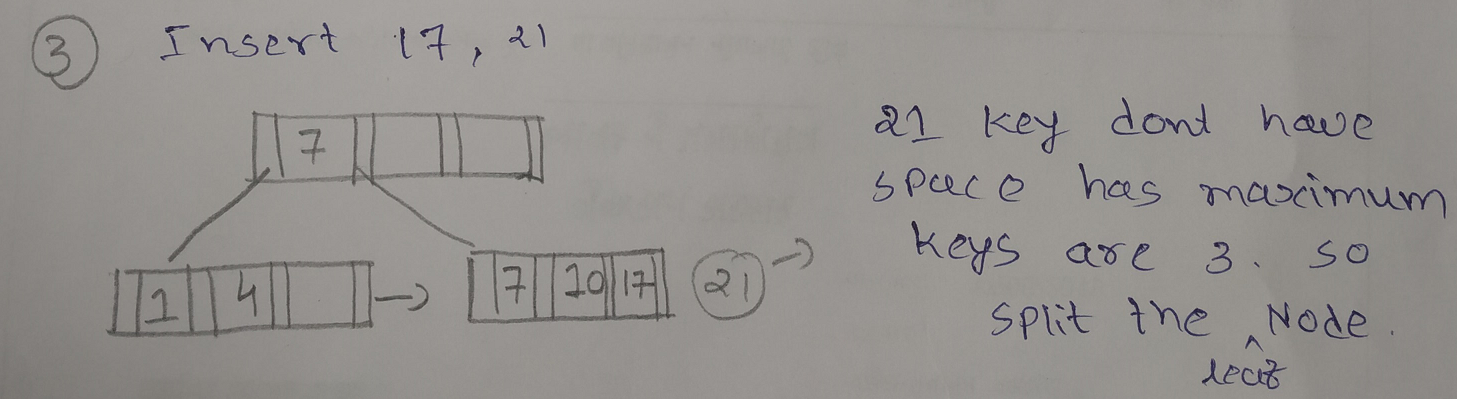 3 Insert 17, 21
7
1 4 → 7 10 17 21 →
21 key dont have
space has maximum
keys are 3. so
split the ^ Node.
leaf